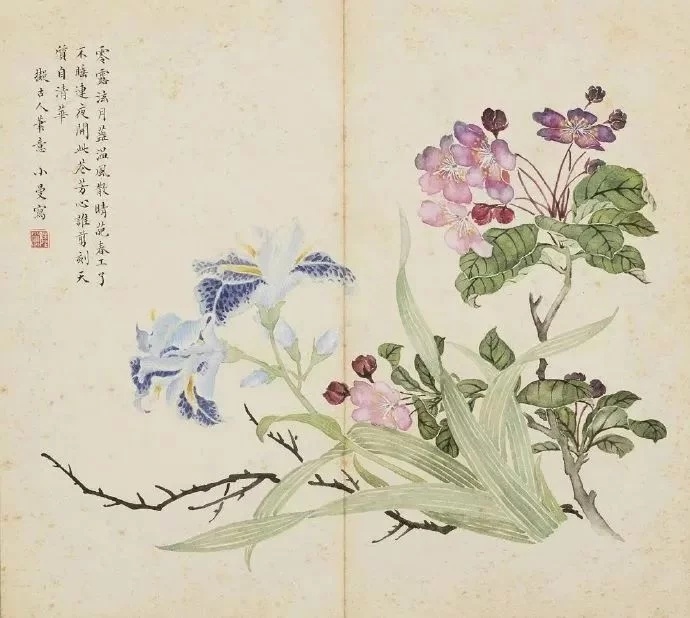 零露泫月蕊溫風散晴葩春工了
不睡連夜開此花芳心誰剪刻天
質自清華
擬古人筆意 小曼寫